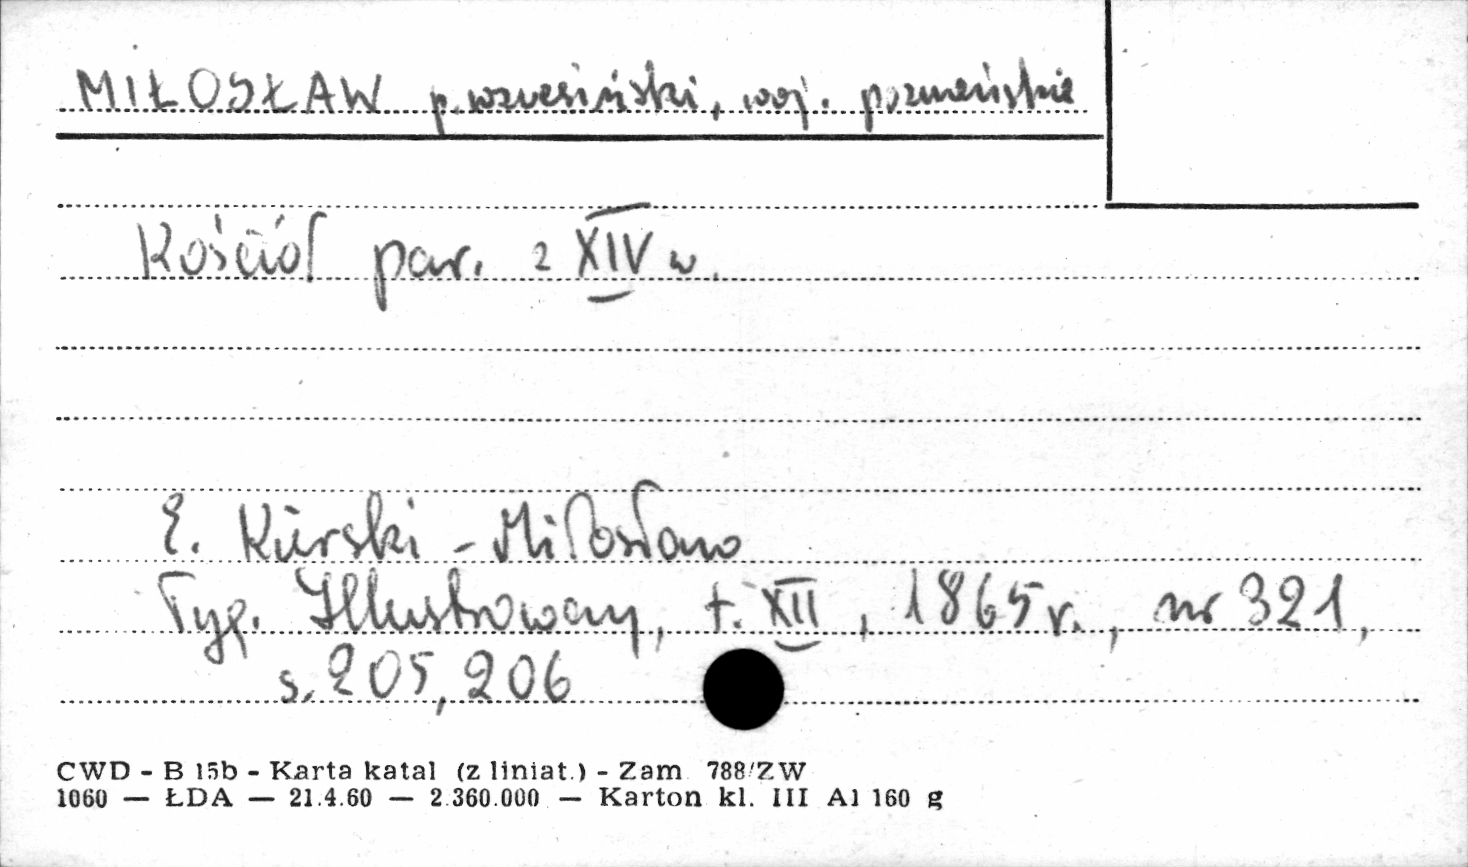 MIŁOSŁAW p. wrzesiński, woj. poznańskie
Kościół par. z XIV w.
E. Kierski - Miłosław
Tyg. Illustrowany, t. XII, 1865 r., nr 321,
s. 205, 206
CWD - B 15b - Karta katal (z liniat.) - Zam 788/ZW
1060 — ŁDA — 21.4.60 — 2.360.000 — Karton kl. III A1 160 g